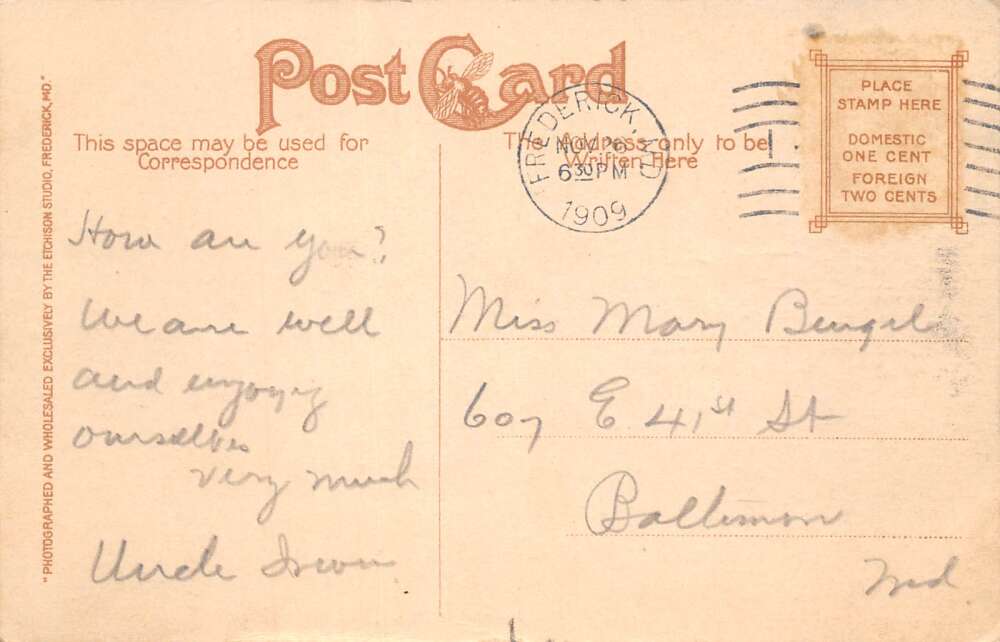 "PHOTOGRAPHED AND WHOLESALED EXCLUSIVELY BY THE ETCHISON STUDIO, FREDERICK, MD."
Post Card
This space may be used for
Correspondence
The Address only to be
Written Here
FREDERICK, MD
NOV 6
630 PM
1909
1
PLACE
STAMP HERE
DOMESTIC
ONE CENT
FOREIGN
TWO CENTS
How are you?
We are well
and enjoying
ourselves
very much
Uncle
Miss Mary
607 E 41st St
Baltimore
Md